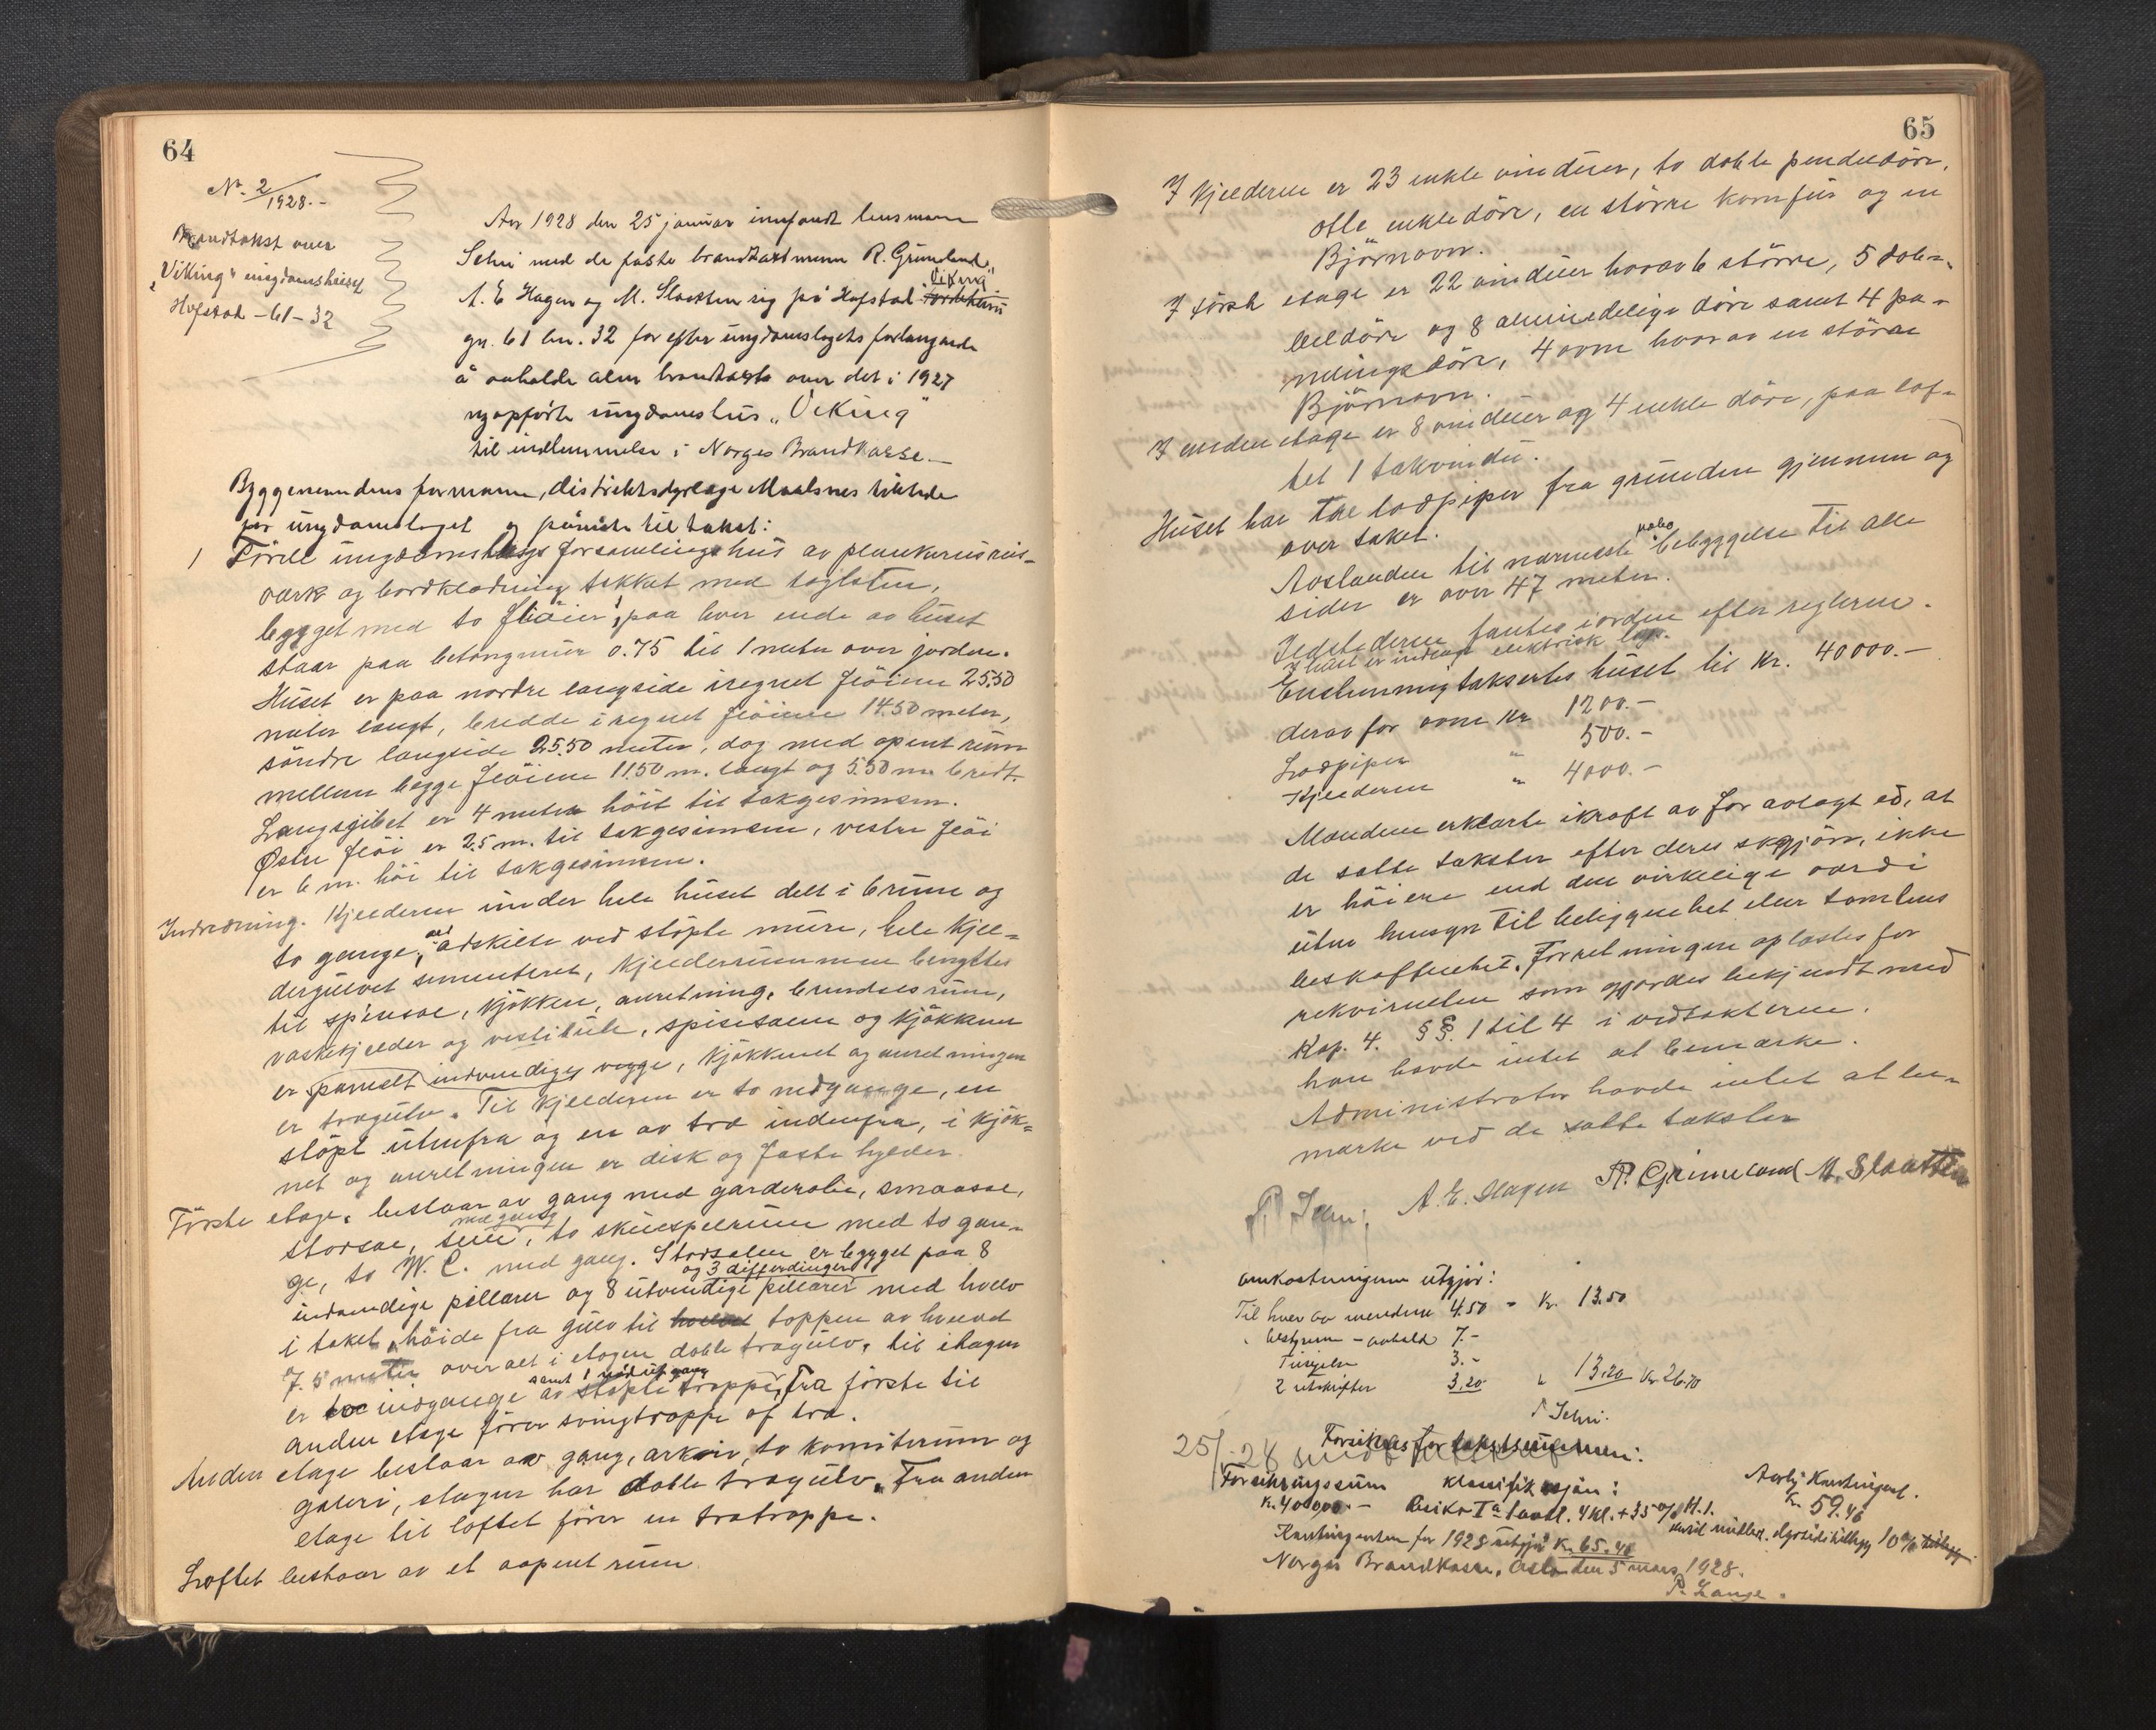 64
No. 2/1928.-
Brandtakst over
"Viking" ungdomshuset
Hofstad - 61 - 32
Aar 1928 den 25 januar innfandt lensmann
Sehri med de faste brandtaxtmenn R. Grimeland,
A. E Hagen og M. Slaatten sig på Hofstad "Viking"
gn. 61 bn. 32 for efter ungdomslagets forlangende
å avholde alm brandtaxt over det i 1927
nyopførte ungdomshus "Viking"
til indlemmelse i Norges Brandkasse.-
Byggenemndens formann, distriktsdyrlæge Maalsnes tilstede
for ungdomslaget og påviste til takst:
1 Förde ungdomslags forsamlingshus av plankerus reis-
værk og bordklædning tækket med taglsten,
bygget med to fløier, paa hver ende av huset
staar paa betongmur 0.75 til 1 meter over jorden.
Huset er paa nordre langside iregnet fløiene 25.50
meter langt, bredde iregnet fløiene 14.50 meter,
søndre langside 25.50 meter, dog med apent rum
mellem begge fløiene 11.50 m. langt og 5.50 m. bredt.
Langsgibet er 4 meter höit til takgesimsen.
Østre fløi er 2.5 m. til takgesimsen, vestre fløi
er 6 m. høi til takgesimsen.
Indredning. Kjelderen under hele huset delt i 6 rum og
to gange, adskilte ved støpte mure, hele kjel-
dergulvet sementeret, kjelderrummene benyttes
til spisesal, kjøkken, anretning, brendselsrum,
vaskekjelder og vestibule, spisesalen og kjøkkenet
er panelt indvendige vegge, kjøkkenet og anretningen
er trægulv. Til kjelderen er to nedgange, en
støpt utenfra og en av træ indenfra, i kjøk-
net og anretningen er disk og faste hylder.
Første etage, bestaar av gang med garderobe, smaasal,
storsal, scene med gang, to skuespelrum med to gan-
ge, to W. C. med gang. Storsalen er bygget paa 8
indvendige pillarer og 8 utvendige pillarer og 3 differdinger med hvelv
i taket, høide fra gulv til toppen av hvelvet
7.5 meter over alt i etagen doble trægulv, til etagen
er to indgange av støpte trappe, samt 1 nødutgang Fra første til
anden etage fører svingtrappe af træ.
Anden etage bestaar av gang, arkiv, to komiterum og
galeri, etagen har doble trægulv. Fra anden
etage til loftet fører en trætrappe.
Loftet bestaar av et aapent rum.
65
I kjelderen er 23 enkle vinduer, to doble pendeldöre,
otte enkle döre, en större komfür og en
Björnovn.
I förste etage er 22 vinduer hvorav 6 större, 5 dob-
beldöre og 8 almindelige döre samt 4 pa-
nelingsdöre, 4 ovne hvorav en större
Björnovn.
I anden etage er 8 vinduer og 4 enkle döre, paa lof-
tet 1 takvindu.
Huset har tre lodpiper fra grunden gjennem og
over taket.
Avstanden til nærmeste nabo bebyggelse til alle
sider er over 47 meter.
Ildstederne fantes iorden efter reglerne.
I huset er indlagt elektrisk lys.
Enstemmig taksertes huset til Kr. 40000.-
derav for ovne Kr 1200.-
Lodpiper " 500.-
Kjelderen " 4000.-
Mændene erklærte ikraft av før avlagt ed, at
de satte takster efter deres skjønn, ikke
er høiere end den virkelige værdi
uten hensyn til beliggenhet eller tomtens
beskaffenhet. Forretningen oplæstes for
rekvirenten som gjordes bekjendt med
Kap. 4. §§. 1 til 4 i vedtækterne.
han havde intet at bemærke.
Administrator havde intet at be-
mærke ved de satte takster
P. Sehri, A. E. Hagen R. Grimeland M. Slaatten
Omkostningene utgjør:
Til hver av menndene 4.50 = Kr. 13.50
" bestyreren - avhold 7.-
Tinglæs 3.-
2 utskrifter 3,20 " 13,20 Kr. 26.70
P Sehri.
25/1-28
Forsikres for takstsummen:
Forsikringssum klassifikasjon: Aarlig Kontingent.
Kr. 40000.- Risiko Ia landt. 4 kl. + 35% H.1. Kr. 59.46
Kontingenten for 1928 utgjør Kr. 65.40
Norges Brandkasse, Oslo den 5 mars 1928.
P. Lange.